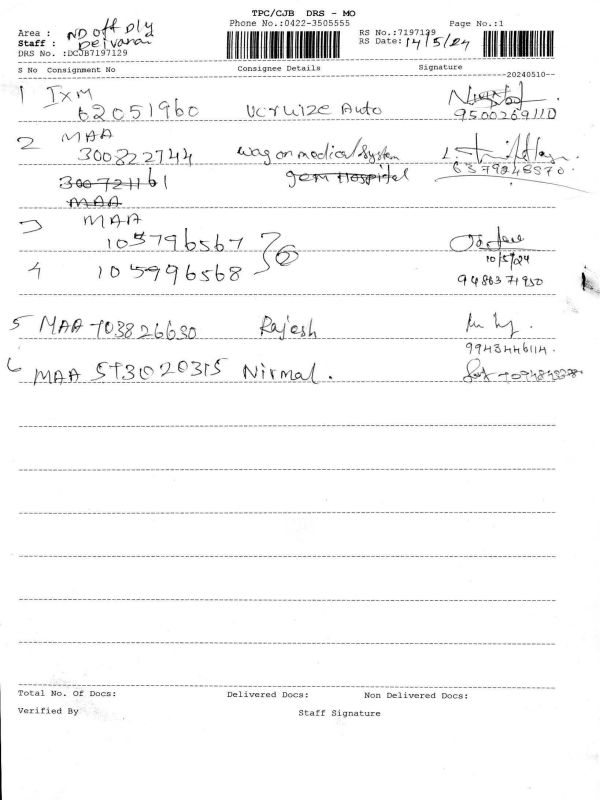 TPC/CJB DRS - MO
Phone No.:0422-3505555
Page No.:1
Area : ND off Dly
RS No.:7197129
Staff : Deivanai
RS Date: 14/5/24
DRS No. :DCJB7197129
S No Consignment No Consignee Details Signature
--20240510--
1 IXM
62051960 Ucruize Auto
9500269110
2 MAA
300822744 wagon medical System
6379248570
300721161 gem Hospital
MAA
3 MAA
105796567
10/5/24
4 105996568
9486371950
5 MAA 703826630 Rajesh
9943446114.
6 MAA 593020315 Nirmal.
Total No. Of Docs: Delivered Docs: Non Delivered Docs:
Verified By Staff Signature